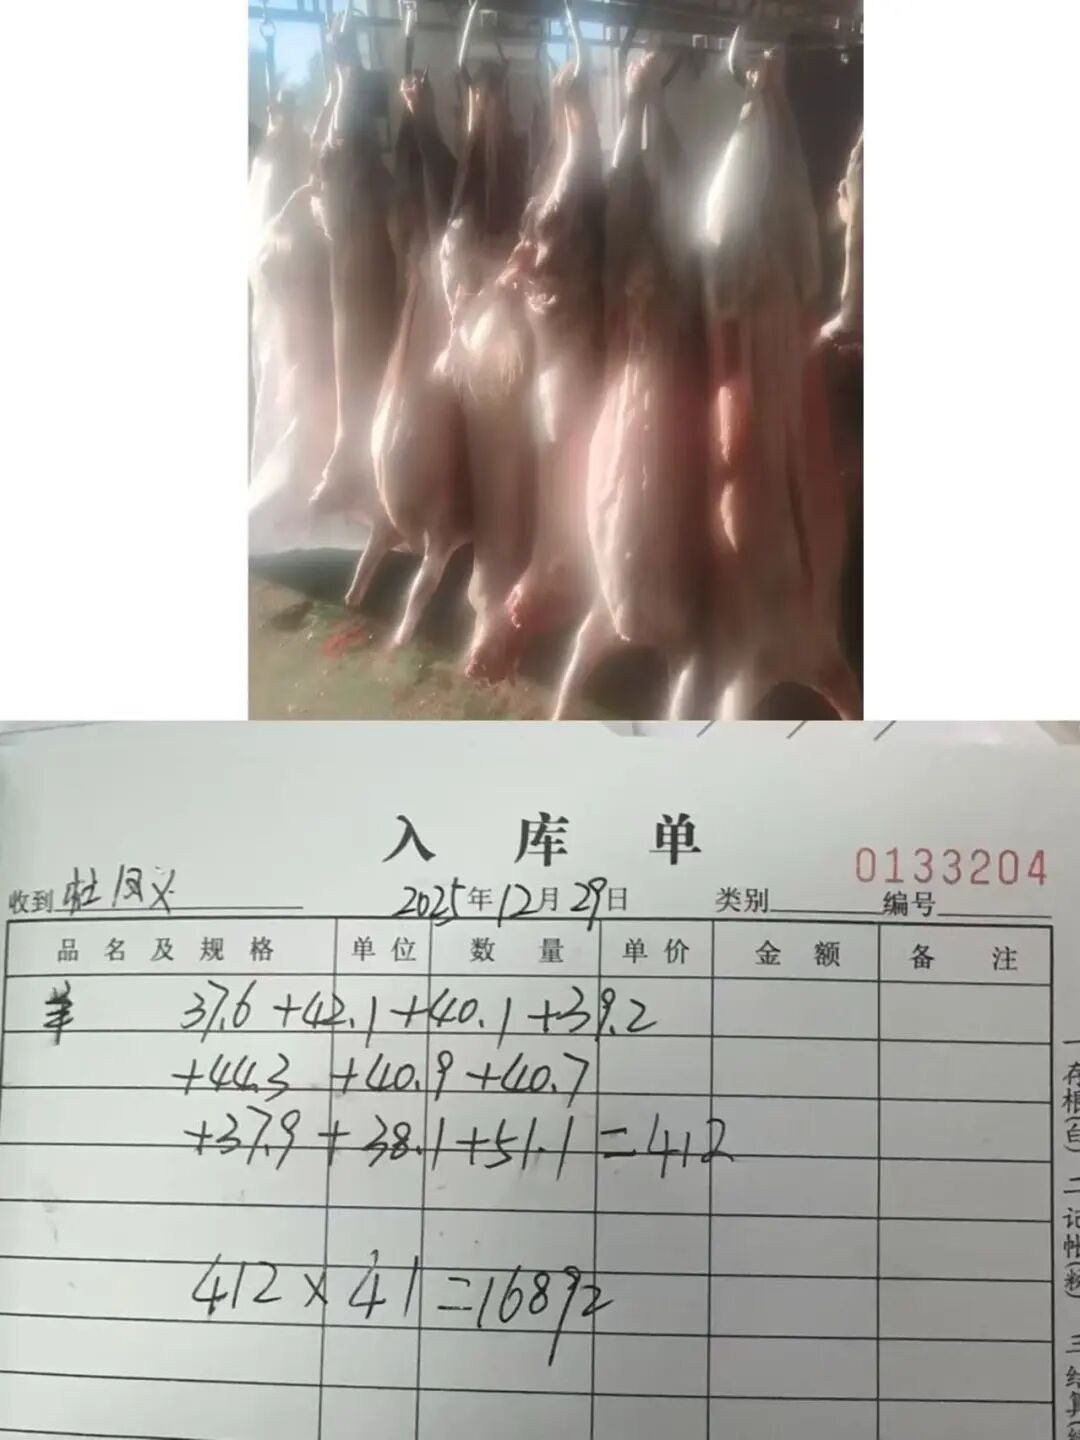 入 库 单
0133204
收到 杜凤义 2025年12月29日 类别 编号
品名及规格 单位 数量 单价 金额 备注
羊 37.6+42.1+40.1+39.2
+44.3+40.9+40.7
+37.9+38.1+51.1=412
412×41=16892
一存根(白) 二记帐(粉) 三结算